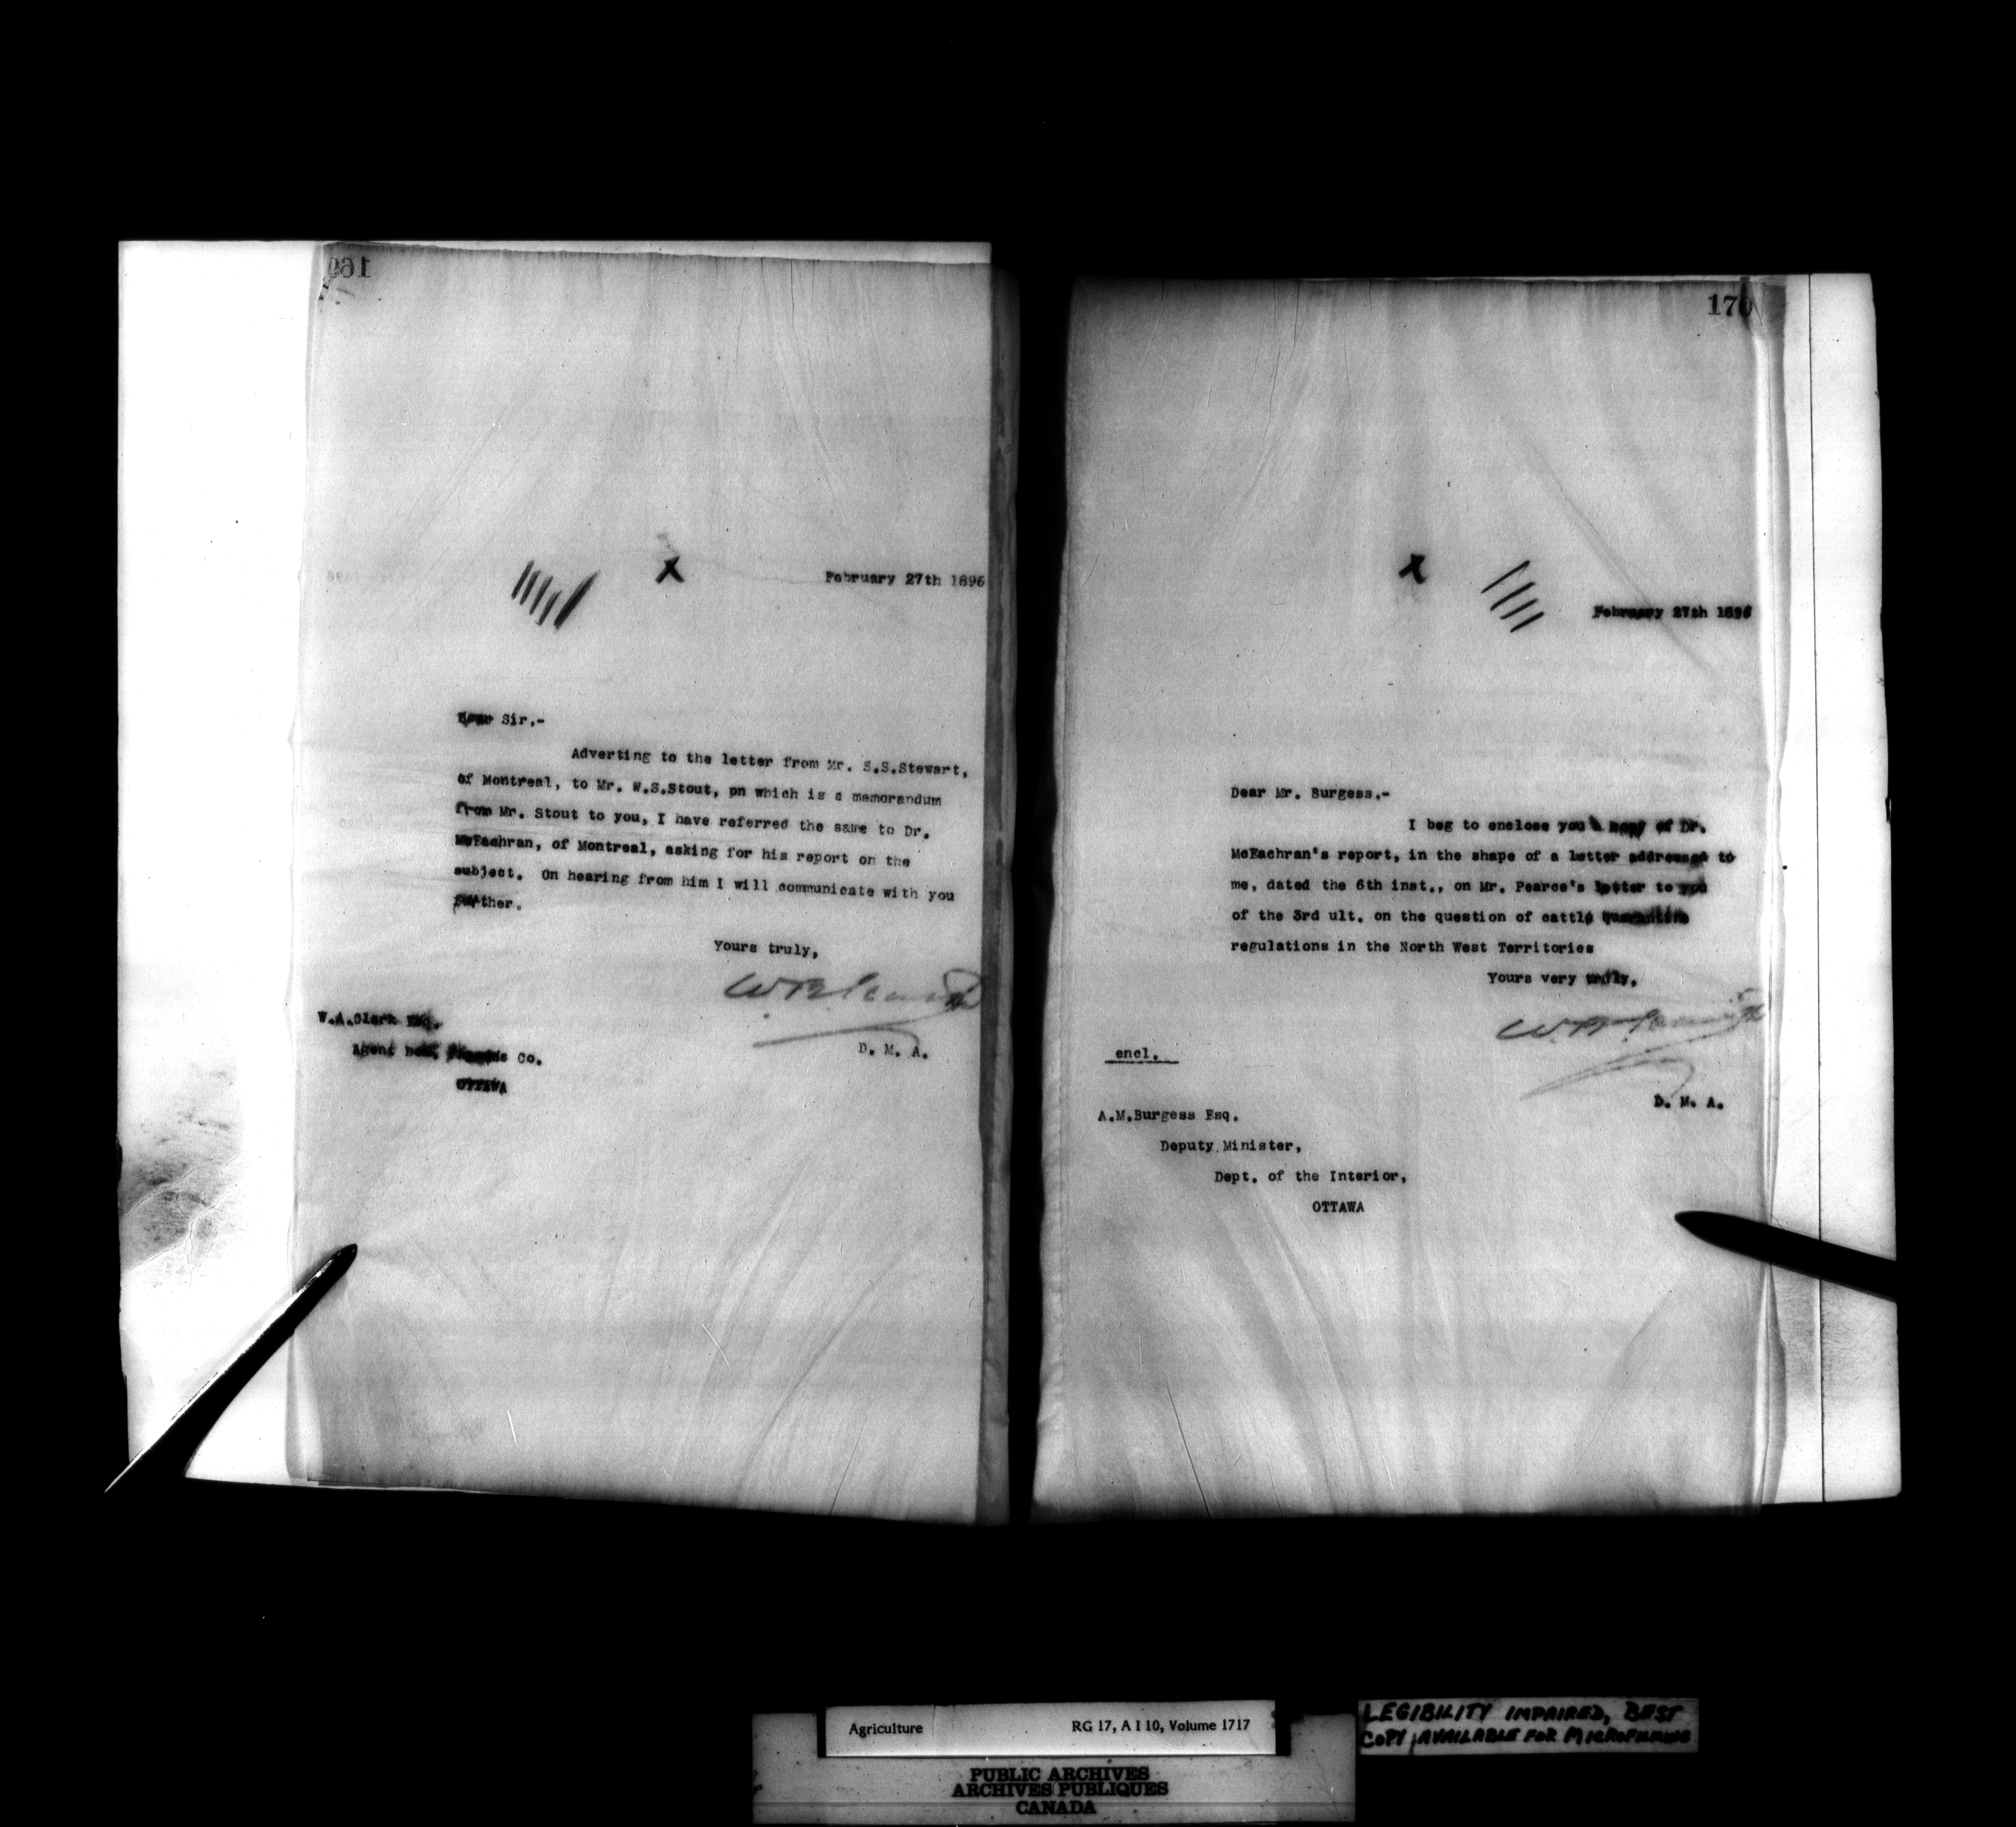 169
February 27th 1896
Dear Sir,-
Adverting to the letter from Mr. S.S.Stewart,
of Montreal, to Mr. W.S.Stout, pn which is a memorandum
from Mr. Stout to you, I have referred the same to Dr.
McEachran, of Montreal, asking for his report on the
subject. On hearing from him I will communicate with you
further.
Yours truly,
D. M. A.
W.A.Clark Esq.
Agent Co.
OTTAWA
170
February 27th 1896
Dear Mr. Burgess,-
I beg to enclose you a copy of Dr.
McEachran's report, in the shape of a letter addressed to
me, dated the 6th inst., on Mr. Pearce's letter to you
of the 3rd ult. on the question of cattle quarantine
regulations in the North West Territories
Yours very truly,
encl.
D. M. A.
A.M.Burgess Esq.
Deputy Minister,
Dept. of the Interior,
OTTAWA
Agriculture RG 17, A I 10, Volume 1717
PUBLIC ARCHIVES
ARCHIVES PUBLIQUES
CANADA
LEGIBILITY IMPAIRED, BEST
COPY AVAILABLE FOR MICROFILMING